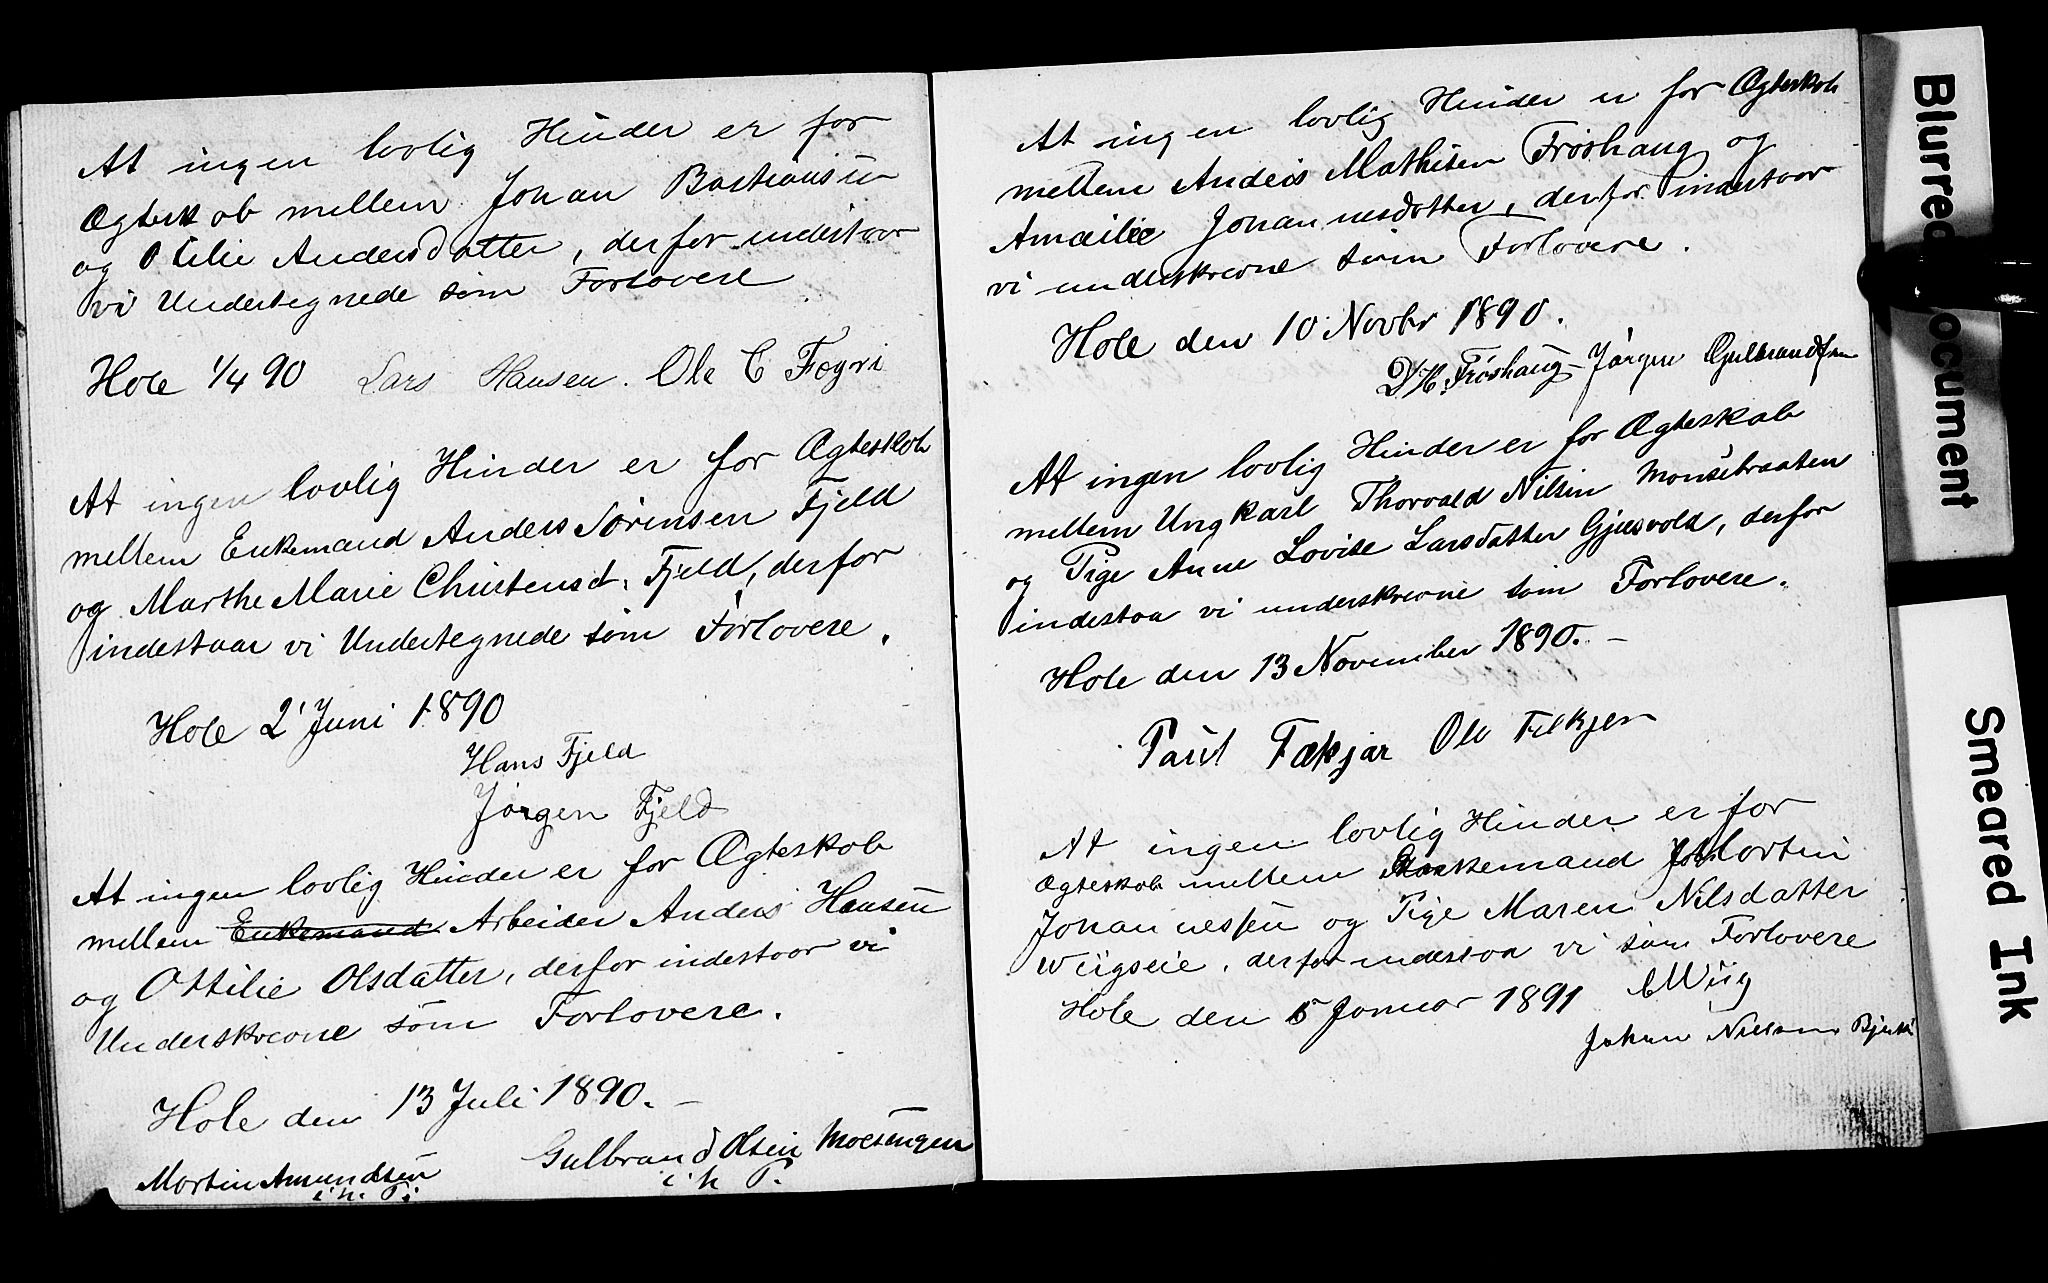 At ingen lovlig Hinder er for
Ægteskab mellem Johan Bastiansen
og Otilie Andersdatter, derfor indestaar
vi Undertegnede som Forlovere
Hole 1/4 90 Lars Hansen. Ole C Fægri
At ingen lovlig Hinder er for Ægteskab
mellem Enkemand Anders Sørensen Fjeld
og Marthe Marie Christensd. Fjeld, derfor
indestaar vi Undertegnede som Forlovere.
Hole 2' Juni 1890
Hans Fjeld
Jørgen Fjeld
At ingen lovlig Hinder er for Ægteskab
mellem Enkemand Arbeider Anders Hansen
og Ottilie Olsdatter, derfor indestaar vi
Underskrevne som Forlovere.
Hole den 13 Juli 1890.
Martin Amundsen Gulbrand Olsen Moesengen
i.h.P. i h P.
At ingen lovlig Hinder er for Ægteskab
mellem Anders Mathisen Frøshaug og
Amailie Johannesdatter, derfor indestaar
vi underskrevne som Forlovere.
Hole den 10 Novbr 1890.
Frøshaug Jørgen Gulbrandsen
At ingen lovlig Hinder er for Ægteskab
mellem Ungkarl Thorvald Nilsen Monsebraaten
og Pige Anne Lovise Larsdatter Gjesvold, derfor
indestaa vi underskrevne som Forlovere.
Hole den 13 November 1890. –
Paul Fækjar Ole Filkjer
At ingen lovlig Hinder er for
Ægteskab mellem Enkemand Martin
Johannessen og Pige Maren Nilsdatter
Wiigseie, derfor indestaa vi som Forlovere
Hole den 5 Januar 1891 Wiig
Johan Nielsen
Blurred Document
Smeared Ink